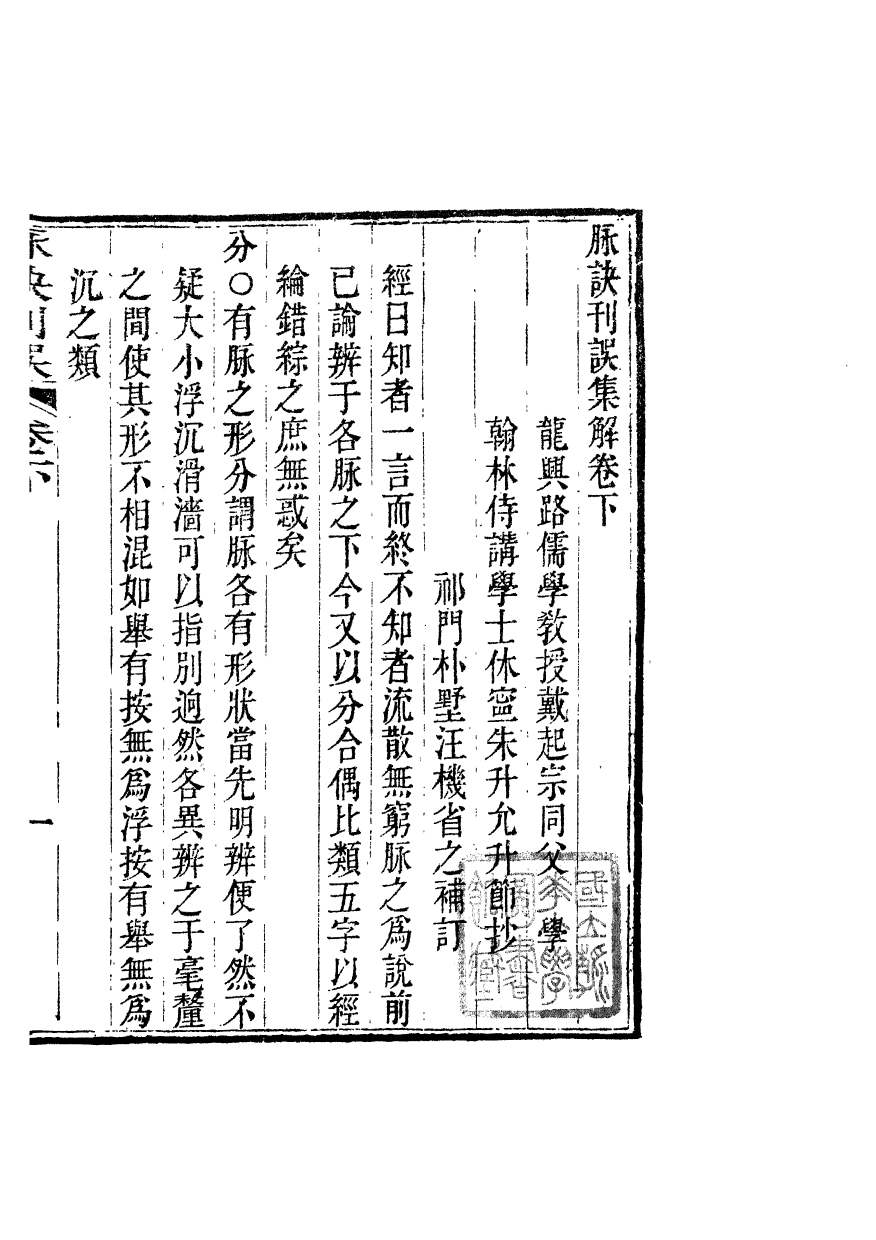 脉訣刊誤集解卷下
龍興路儒學敎授戴起宗同父 學
翰林侍講學士休寧朱升允升節抄
祁門朴墅汪機省之補訂
經曰知者一言而終不知者流散無窮脉之爲說前
已論辨于各脉之下今又以分合偶比類五字以經
綸錯綜之庶無惑矣
分○有脉之形分謂脉各有形狀當先明辨便了然不
疑大小浮沉滑濇可以指別逈然各異辨之于毫釐
之間使其形不相混如舉有按無爲浮按有舉無爲
沉之類
脉訣刊誤 卷下 一